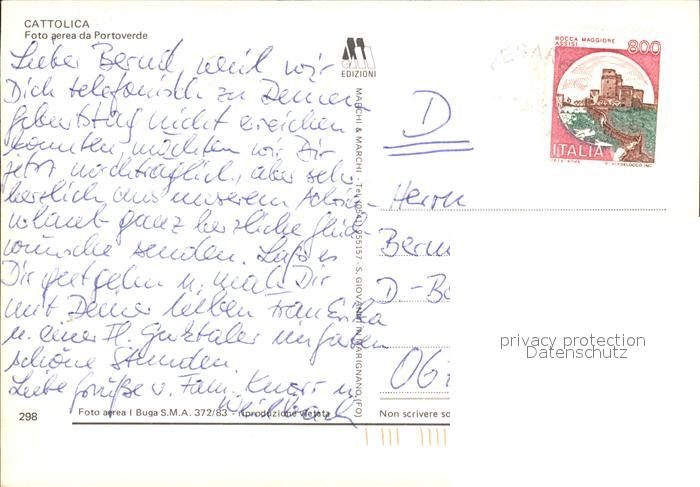 CATTOLICA
Foto aerea da Portoverde
EDIZIONI
ROCCA MAGGIORE
ASSISI
800
ITALIA
Lieber Bernd, weil wir
Dich telefonisch zu Deinem
Geburtstag nicht ereichen
konnten möchten wir Dir
jetzt nachträglich, aber sehr
herzlich aus unserem Adria-
urlaub ganz herzliche Glück-
wünsche senden. Lass es
Dir gut gehn u. mach Dir
mit Deiner lieben Frau Erika
u. einer Fl. in guten
schöne Stunden.
Liebe Grüße v. Fam. u.
D
Herrn
Bern
D.-Bo
06
MARCHI & MARCHI - Tel. (0541) 955157 - S. GIOVANNI IN MARIGNANO (FO)
privacy protection
Datenschutz
298
Foto aerea I Buga S.M.A. 372/83 - riproduzione vietata
Non scrivere so